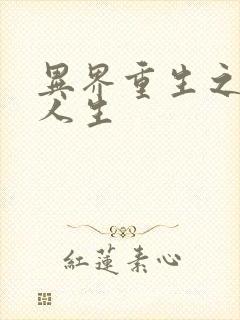 異界重生之
人生
紅蓮素心